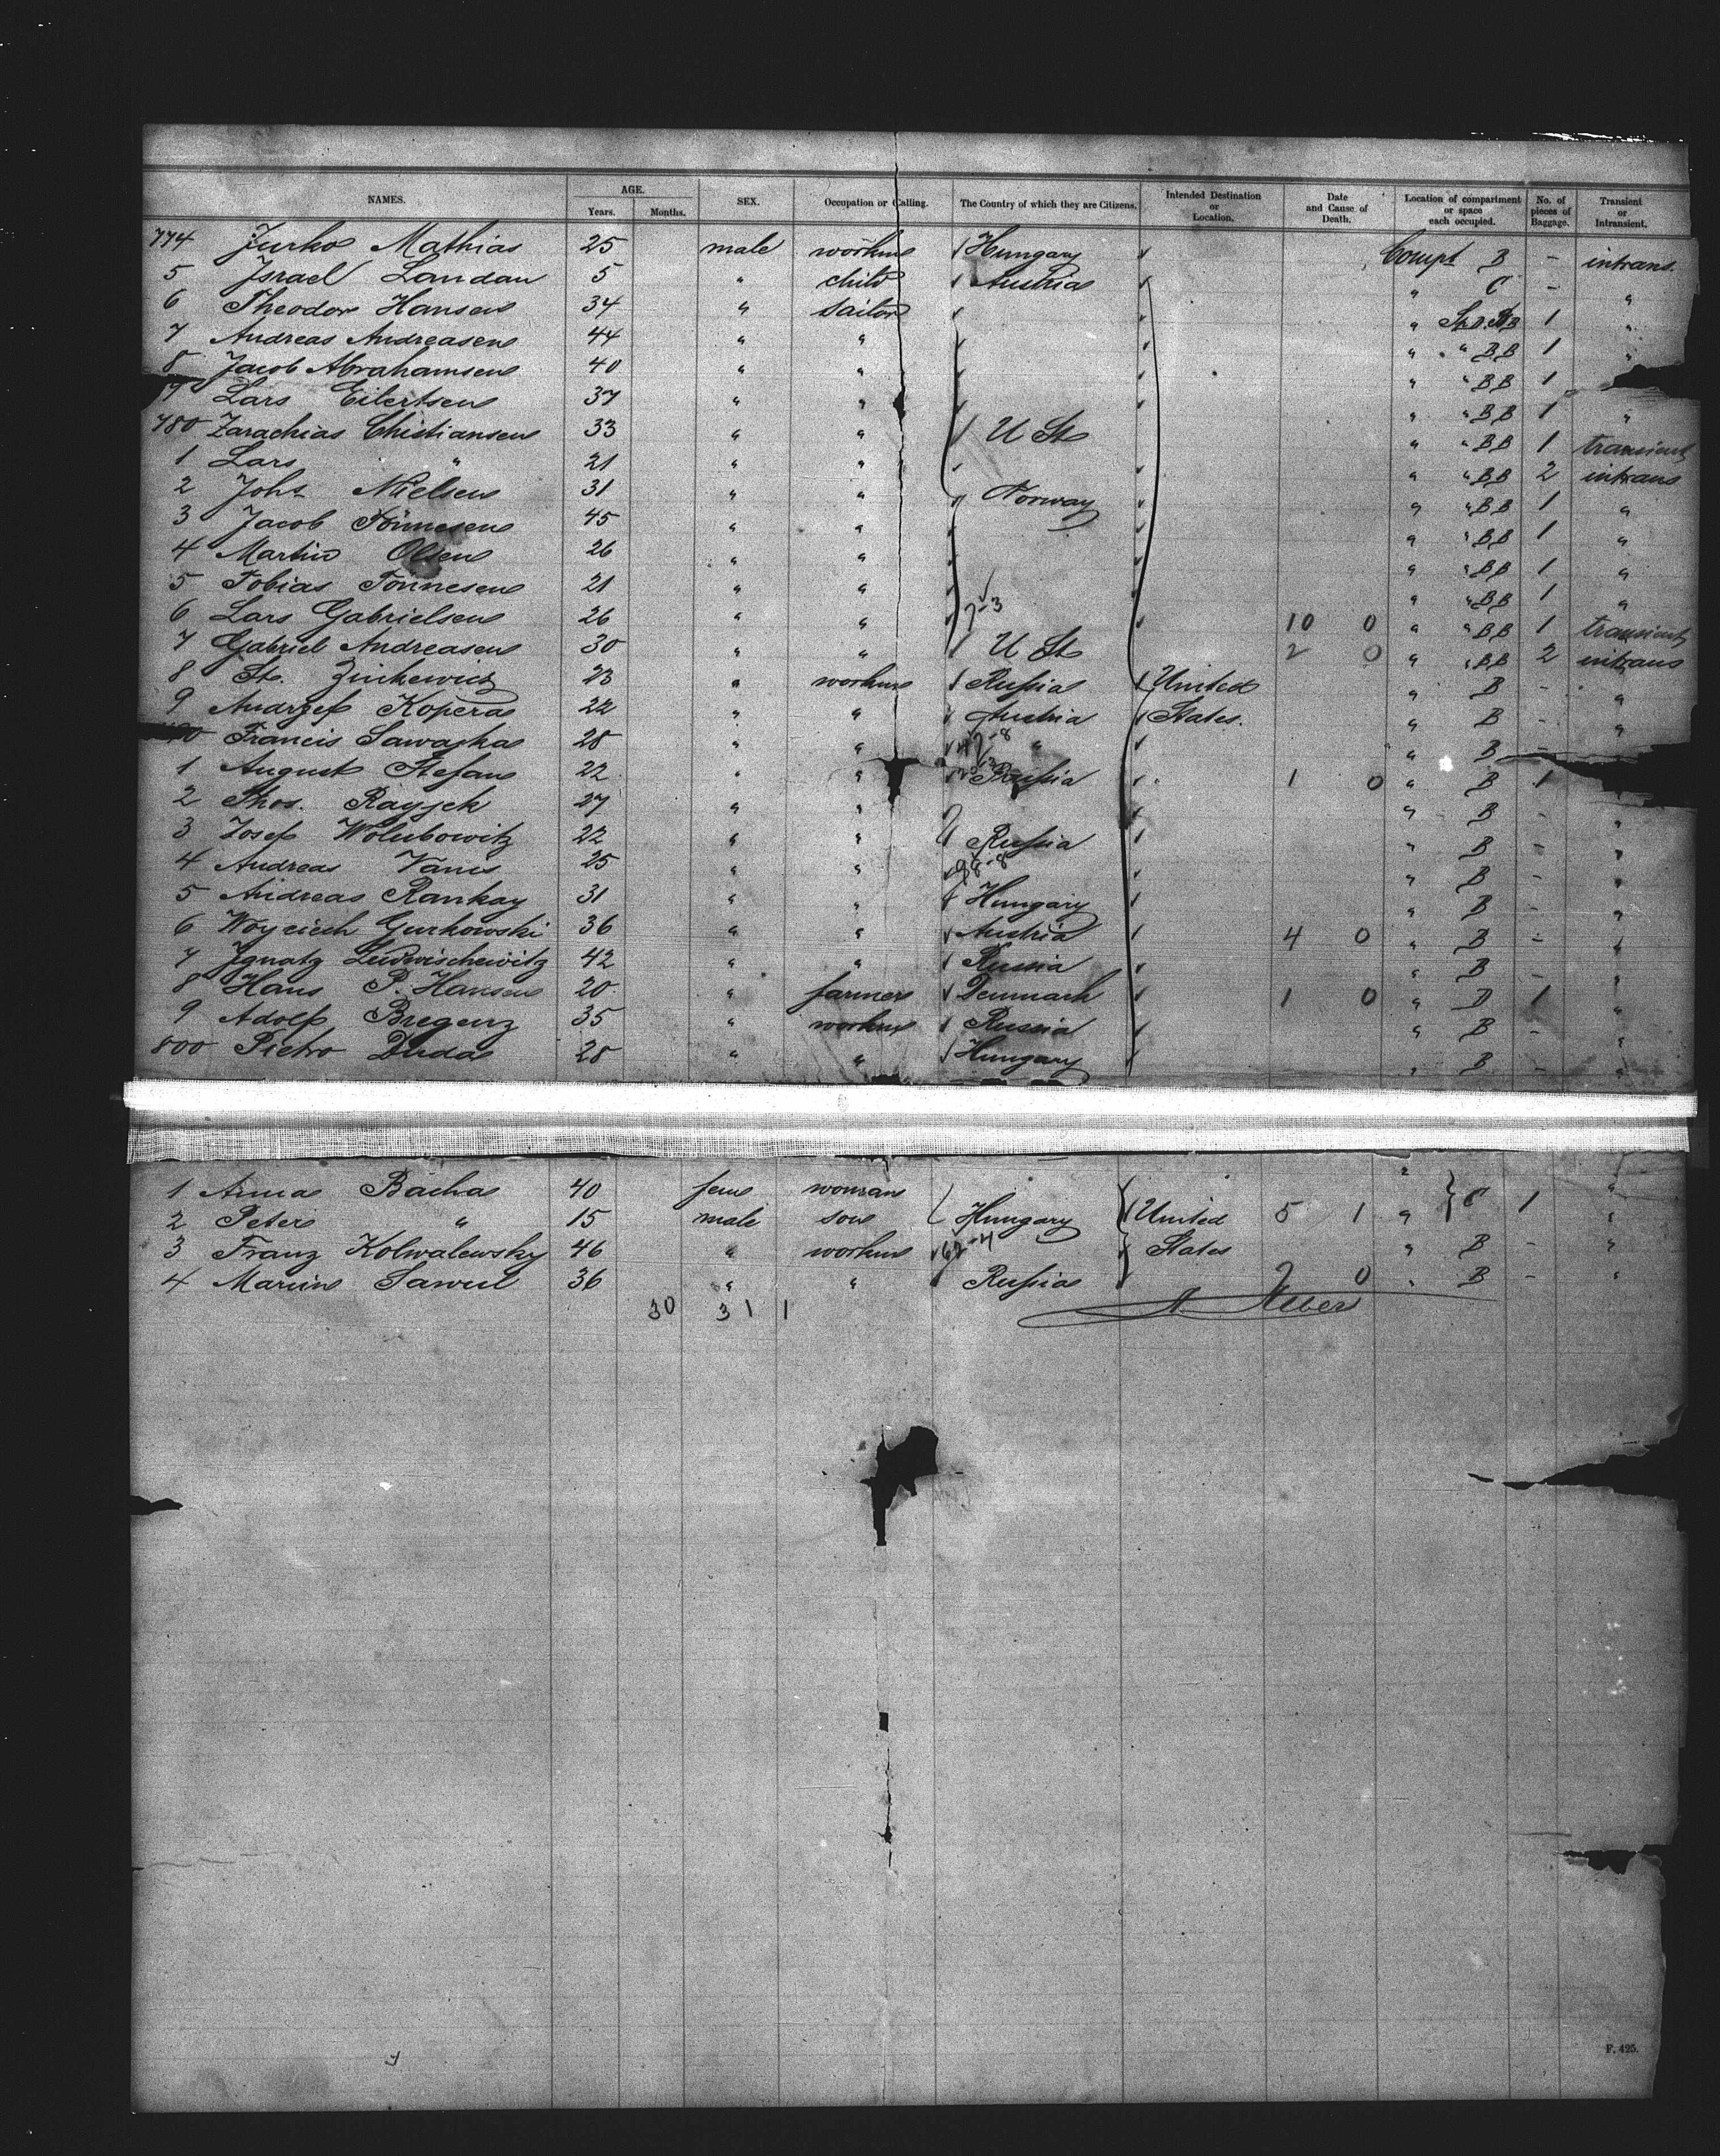 NAMES. AGE. Years. Months. SEX. Occupation or Calling. The Country of which they are Citizens. Intended Destination or Location. Date and Cause of Death. Location of compartment or space each occupied. No. of pieces of Baggage. Transient or Intransient.
774 Jurko Mathias 25 male workm Hungary Compt B - intrans.
5 Israel Landau 5 " child Austria " C - "
6 Theodor Hansen 34 " sailor " 1 "
7 Andreas Andreasen 44 " " " " BB 1 "
8 Jacob Abrahamsen 40 " " " " BB 1
9 Lars Eilertsen 37 " " " " BB 1 "
780 Zarachias Chistiansen 33 " " U St " " BB 1 transient
1 Lars " 21 " " " " BB 2 intrans
2 Joh. Nielsen 31 " " Norway " " BB 1 "
3 Jacob Tönnesen 45 " " " " BB 1 "
4 Martin Olsen 26 " " " " BB 1 "
5 Tobias Tönnesen 21 " " " " BB 1 "
6 Lars Gabrielsen 26 " " 7-3 10 0 " " BB 1 transient
7 Gabriel Andreasen 30 " " U St 2 0 " " BB 2 intrans
8 St. Zinkewicz 23 " workm Russia United " B - "
9 Andrzej Kopera 22 " " Austria States. " B - "
90 Francis Sawajka 28 " " " " B -
1 August Stefan 22 " " Prussia 1 0 " B 1
2 Thos. Rayzek 27 " " " B - "
3 Josef Wolubowitz 22 " " Russia " B - "
4 Andreas Vanis 25 " " " B - "
5 Andreas Rankay 31 " " Hungary " B - "
6 Woyciech Gurkowski 36 " " Austria 4 0 " B - "
7 Ignatz Ludwischewitz 42 " " Russia " B - "
8 Hans P. Hansen 20 " farmer Denmark 1 0 " D 1 "
9 Adolf Bregenz 35 " workm Russia " B - "
800 Pietro Duda 28 " " Hungary " B - "
1 Anna Bacha 40 fem woman " "
2 Peter " 15 male son Hungary United 5 1 " C 1 "
3 Franz Kolwalewsky 46 " workm States " B - "
4 Marin Sawul 36 " " Russia 2 0 " B - "
30 31 1
F. 425.